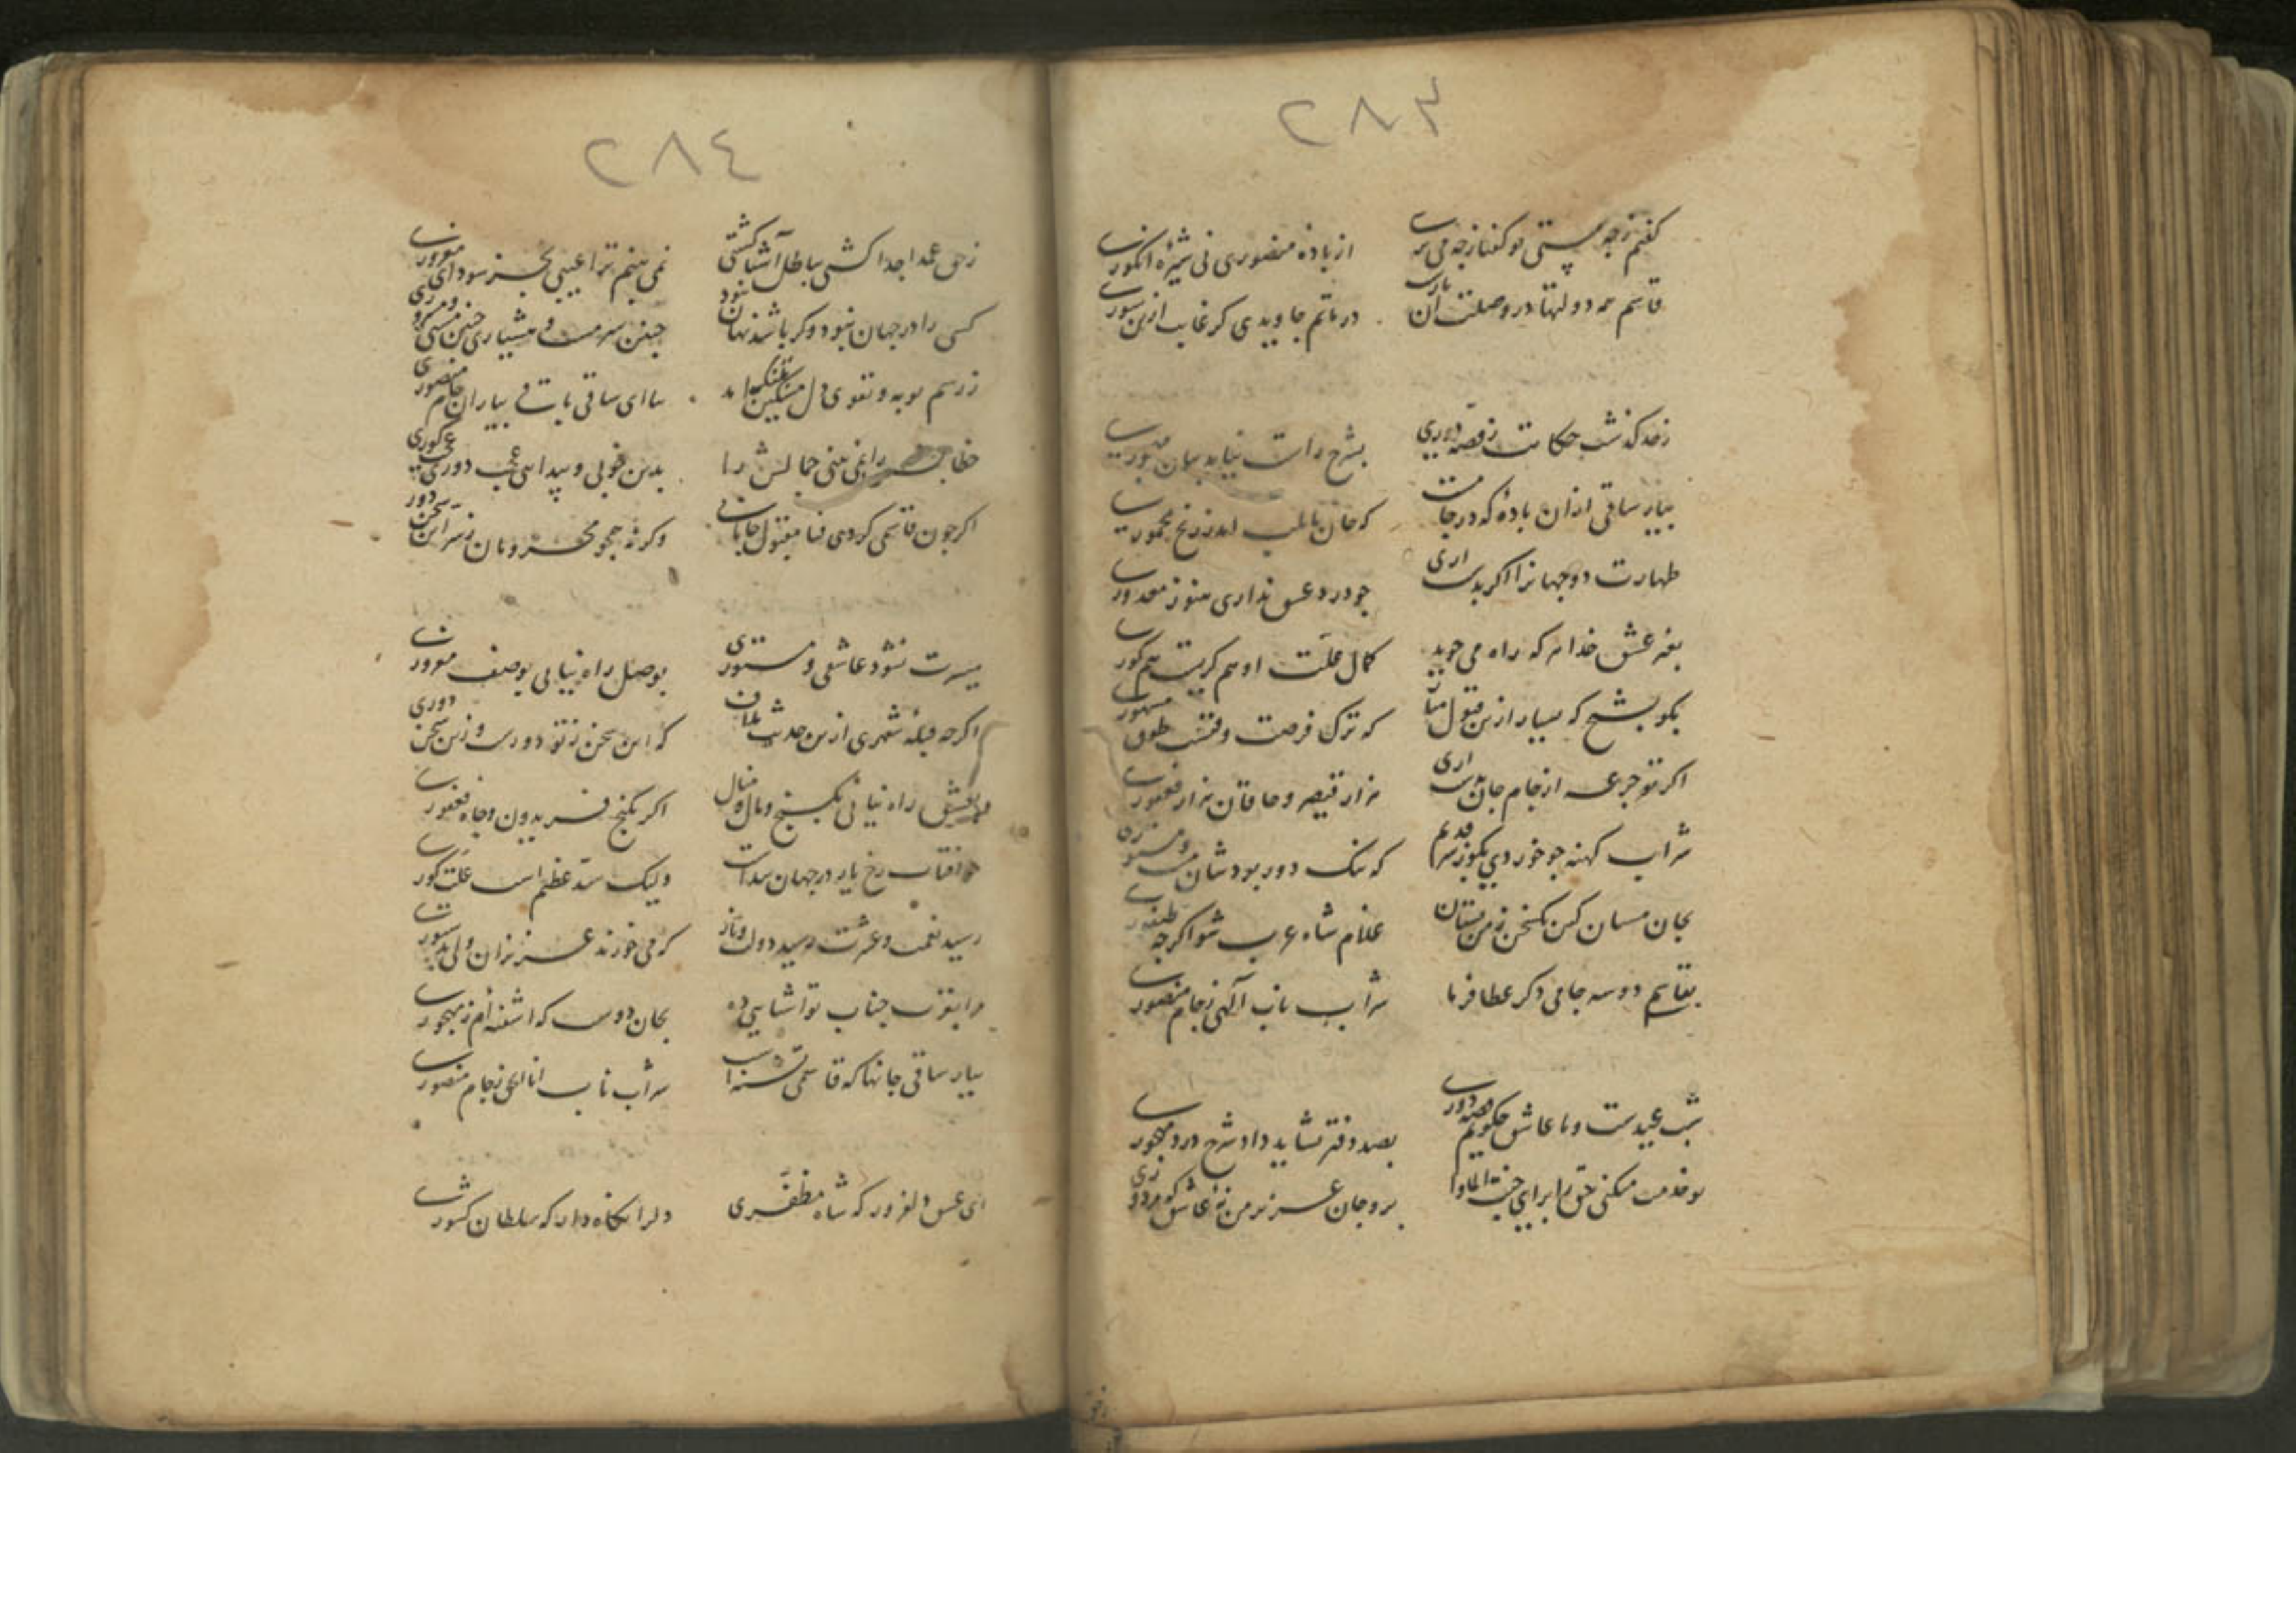 ٢٨٣
گفتم ز چه مستی تو گفتا ز چه می پرسی
از باده منصوری نی شیره انگوری
قاسم همه دولتها در وصلت آن یارست
در ماتم جاویدی گر غایب ازین سوری
ز حد گذشت حکایت ز قصه دوری
بشرح راست نیاید بیان مهجوری
بیار ساقی ازان باده که در جامست
که جان بلب آمد ز رنج مخموری
طهارت دو جهانرا اگر بدست اری
چو درد عشق نداری هنوز معذوری
بغیر عشق خدا هر که راه می جوید
کمال علت او هم کریست هم کوری
بگو بشیخ که بسیار ازین قبول ملاف
که ترک فرصت وقتست طور مشهوری
اگر تو جرعه از جام جان بدست اری
هزار قیصر و خاقان هزار فغفوری
شراب کهنه چو خوردی بگو ز سر قدیم
که ننگ دور بود شان مستی و مستوری
بجان مسان کن سخن ز من بستان
غلام شاه عرب شو اگر چه طیفوری
بقاسم دو سه جامی دگر عطا فرما
شراب ناب آلهی ز جام منصوری
شب عیدست و ما عاشق چگویم قصه دوری
بصد دفتر نشاید داد شرح درد مهجوری
تو خدمت میکنی حق را برای جنت الماوا
برو جان عزیز من نه عاشق که مزدوری
٢٨٤
ز حق عمدا جدا گشتی بباطل آشنا گشتی
نمی بینم ترا عیبی بجز سودای مغروری
کسی را در جهان نبود و گر باشد نهان نبود
چنین سرمست و هشیاری چنین مستی و مستوری
ز رسم توبه و تقوی دل مسکین بتنگ آمد
بیا ای ساقی باقی بیاران جام منصوری
خطا را نمی بینی جمالش را
بدین خوبی و پیدایی عجب دوری عجب کوری
اگر چون قاسمی گردی فنا مقبول جانانی
وگرنه همچو محرومان ز سر این سخن دوری
میسرت نشود عاشقی و مستوری
بوصل راه نیابی بوصف مغروری
اگر چه قبله شهری ازین حدیث ملاف
که این سخن ز تو دورست و زین سخن دوری
بعشق راه نیابی بگنج و مال و منال
اگر بگنج فریدون و جاه فغفوری
چو افتاب رخ یار در جهان پیداست
ولیک سد عظیم است علت کوری
رسید نعمت و عشرت رسید دولت و ناز
که می خورند عزیزان ولی بدستوری
مرا بقرب جناب تو اشنایی ده
بجان دوست که اشفته ام ز مهجوری
بیار ساقی جانها که قاسمی تشنه است
شراب ناب انا الحق ز جام منصوری
ای عشق دلفروز که شاه مظفری
دلرا نگاه دار که سلطان کشوری